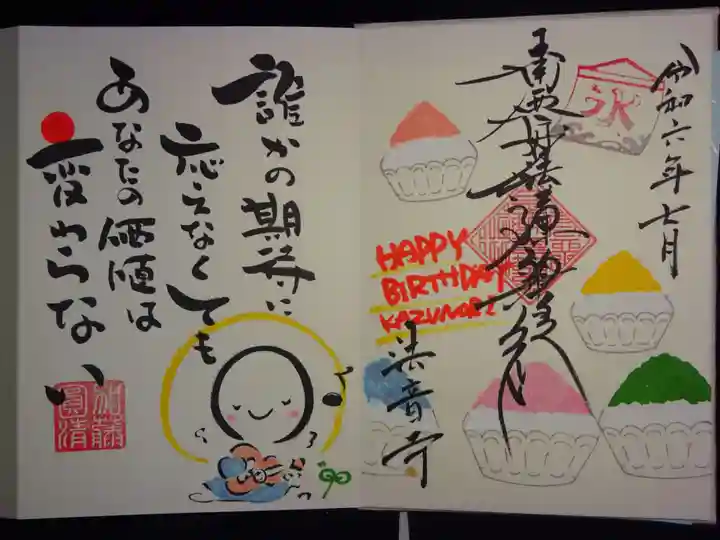 令和六年七月
氷
南無妙法蓮華経
HAPPY
BIRTHDAY
KAZUNORI
法音寺
誰かの期待に
応えなくても
あなたの価値は
変わらない
加藤
圓清